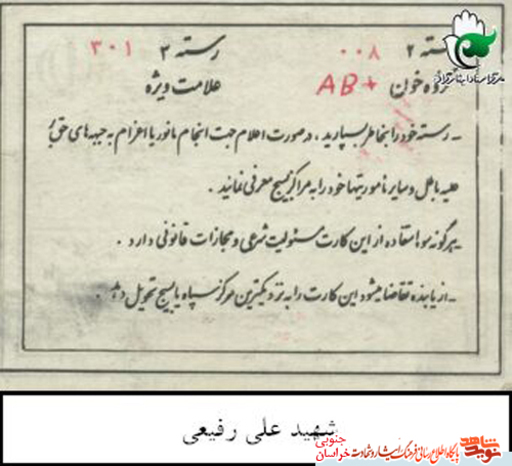 رسته ۲ ۰۰۸ رسته ۳ ۳۰۱
گروه خون AB+ علامت ویژه
ـ رسته خود را بخاطر بسپارید ، در صورت اعلام جهت انجام مانور یا اعزام به جبهه های حق
علیه باطل و سایر ماموریتها خود را به مراکز بسیج معرفی نمائید .
ـ هرگونه سوء استفاده از این کارت مسئولیت شرعی و مجازات قانونی دارد .
ـ از یابنده تقاضا میشود این کارت را به نزدیکترین مرکز سپاه یا بسیج تحویل دهد .
شهید علی رفیعی
نوید شاهد
پایگاه اطلاع رسانی فرهنگ ایثار و شهادت
خراسان جنوبی